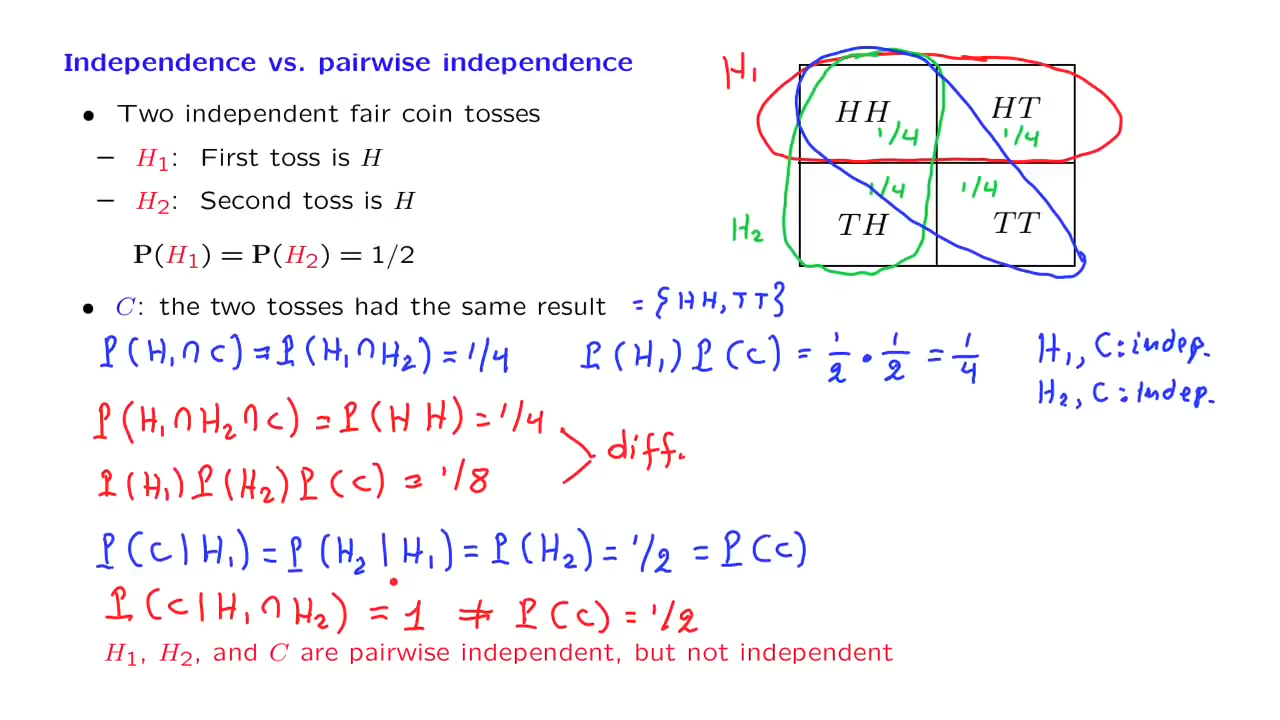 Independence vs. pairwise independence
• Two independent fair coin tosses
– H₁: First toss is H
– H₂: Second toss is H
P(H₁) = P(H₂) = 1/2
H₁
HH 1/4
HT 1/4
1/4 TH
1/4 TT
H₂
• C: the two tosses had the same result = {HH, TT}
P(H₁∩C) = P(H₁∩H₂) = 1/4 P(H₁)P(C) = 1/2 · 1/2 = 1/4 H₁, C: indep.
H₂, C: indep.
P(H₁∩H₂∩C) = P(HH) = 1/4
diff.
P(H₁)P(H₂)P(C) = 1/8
P(C|H₁) = P(H₂|H₁) = P(H₂) = 1/2 = P(C)
P(C|H₁∩H₂) = 1 ≠ P(C) = 1/2
H₁, H₂, and C are pairwise independent, but not independent